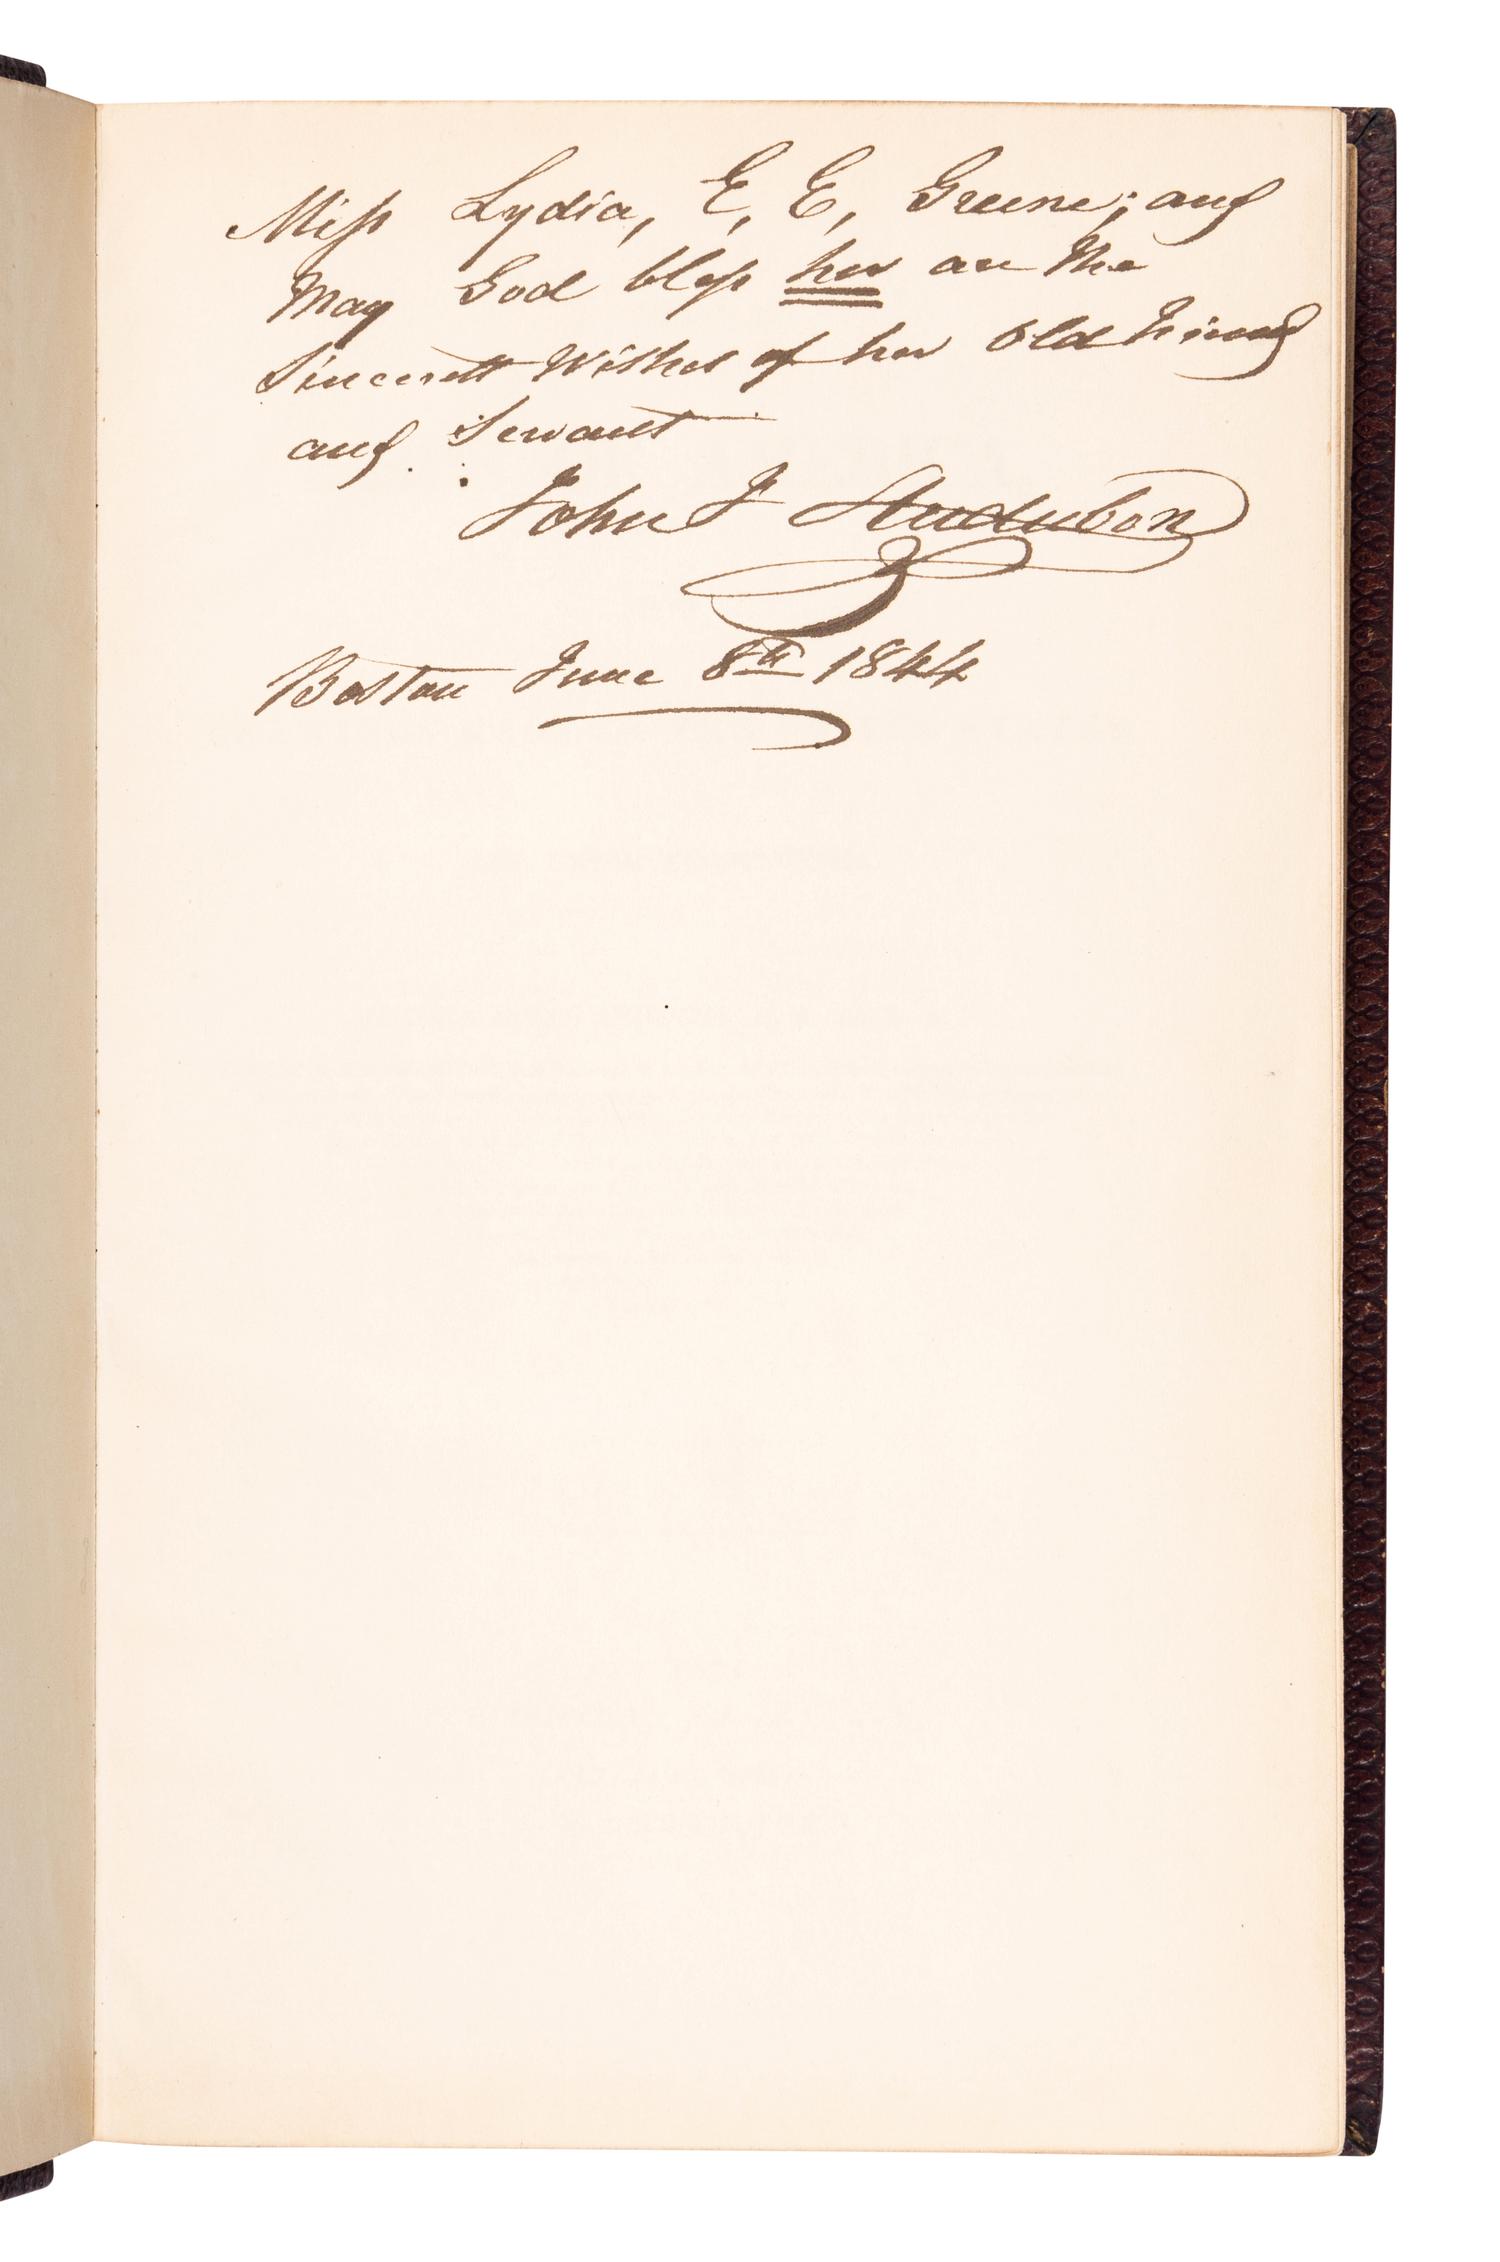 Miss Lydia, E, E, Greene; and
May God bless her are the
Sincerest Wishes of her Old Friend
and Servant
John J Audubon
Boston June 8th 1844